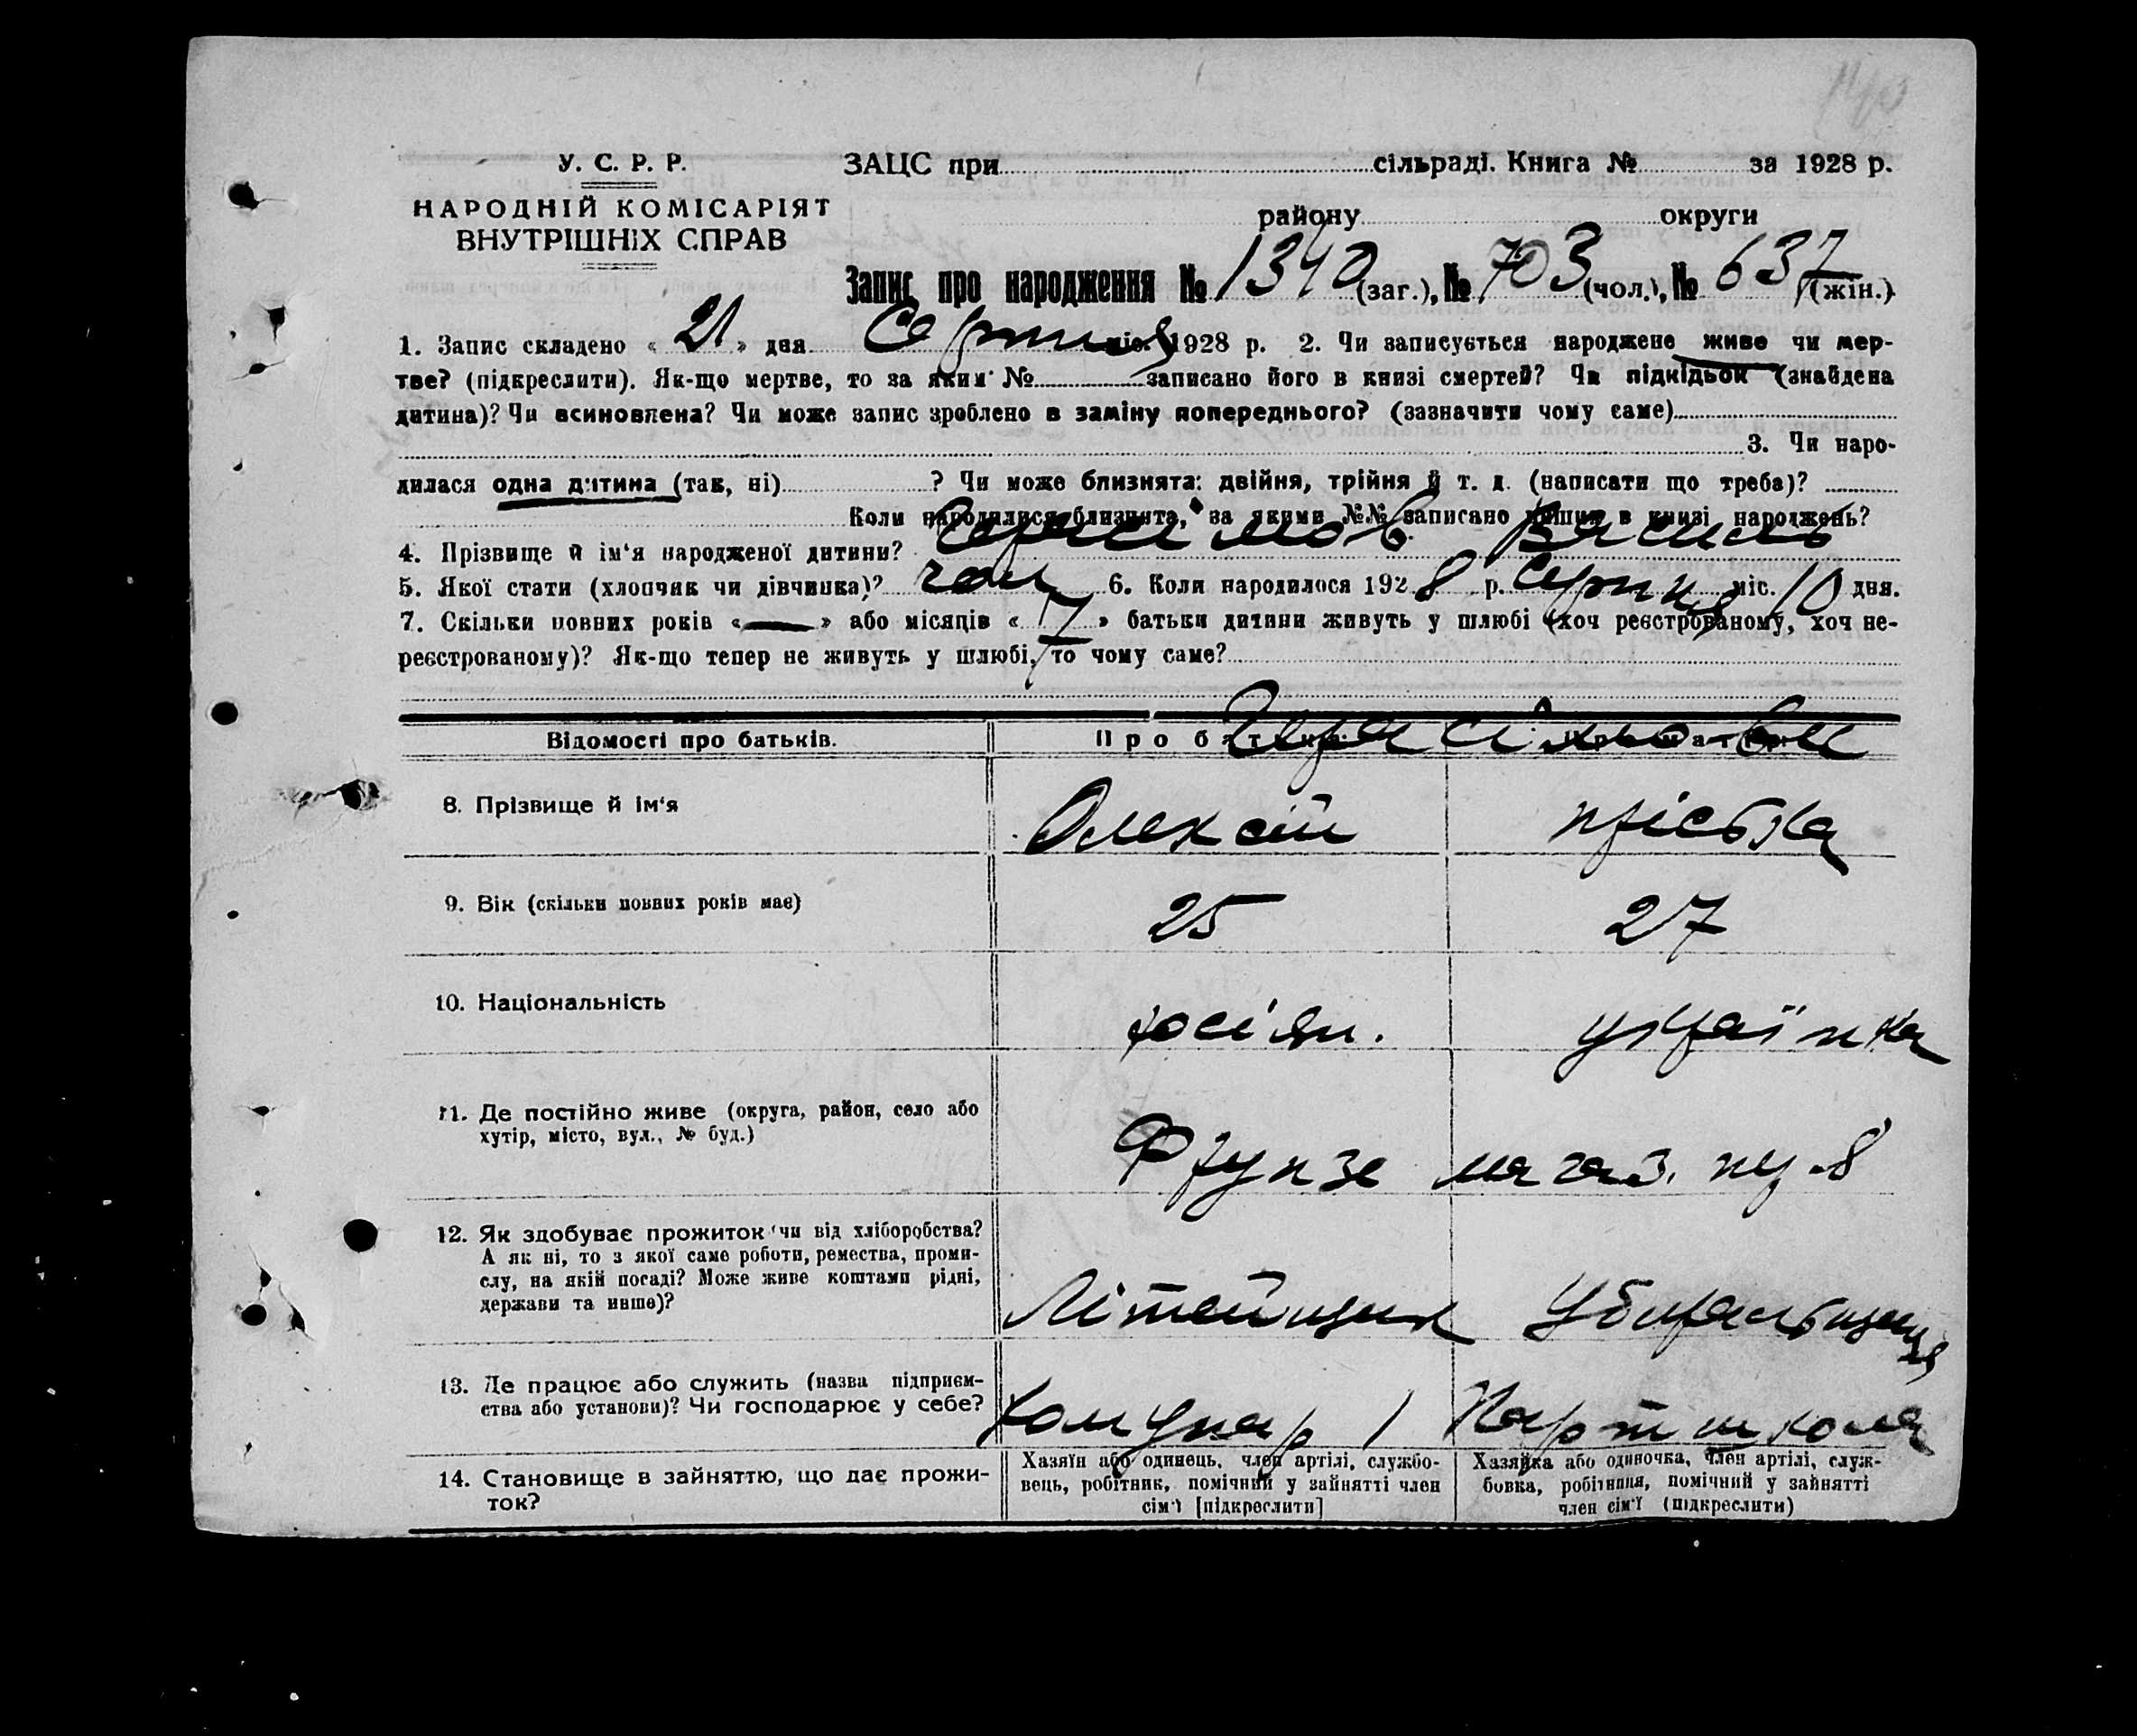 У. С. Р. Р.
НАРОДНІЙ КОМІСАРІЯТ
ВНУТРІШНІХ СПРАВ
ЗАЦС при сільраді. Книга № за 1928 р.
району округи
Запис про народження № 1340 (заг.), № 703 (чол.), № 637 (жін.)
1. Запис складено « 21 » дня Серпня міс. 1928 р. 2. Чи записується народжене живе чи мер-
тве? (підкреслити). Як-що мертве, то за яким № записано його в книзі смертей? Чи підкідьок (знайдена
дитина)? Чи всиновлена? Чи може запис зроблено в заміну попереднього? (зазначити чому саме)
3. Чи наро-
дилася одна дитина (так, ні) ? Чи може близнята: двійня, трійня й т. д. (написати що треба)?
Коли народилися близнята, за якими №№ записано инших в книзі народжень?
4. Прізвище й ім'я народженої дитини?
5. Якої стати (хлопчик чи дівчинка)? чол 6. Коли народилося 1928 р. Серпня міс. 10 дня.
7. Скільки повних років « — » або місяців « 7 » батьки дитини живуть у шлюбі (хоч реєстрованому, хоч не-
реєстрованому)? Як-що тепер не живуть у шлюбі, то чому саме?
Відомості про батьків. Про батька
8. Прізвище й ім'я Олексій
9. Вік (скільки повних років має) 25 27
10. Національність росіян. українка
11. Де постійно живе (округа, район, село або
хутір, місто, вул., № буд.)
Фрунзе магаз. №8
12. Як здобуває прожиток чи від хліборобства?
А як ні, то з якої саме роботи, ремества, проми-
слу, на якій посаді? Може живе коштами рідні,
держави та инше)?
Літейщик Убиральщиця
13. Де працює або служить (назва підприєм-
ства або установи)? Чи господарює у себе?
Комунар Партшкола
14. Становище в зайняттю, що дає прожи-
ток?
Хазяїн або одинець, член артілі, службо-
вець, робітник, помічний у зайнятті член
сім'ї [підкреслити]
Хазяйка або одиночка, член артілі, служ-
бовка, робітниця, помічний у зайнятті
член сім'ї (підкреслити)